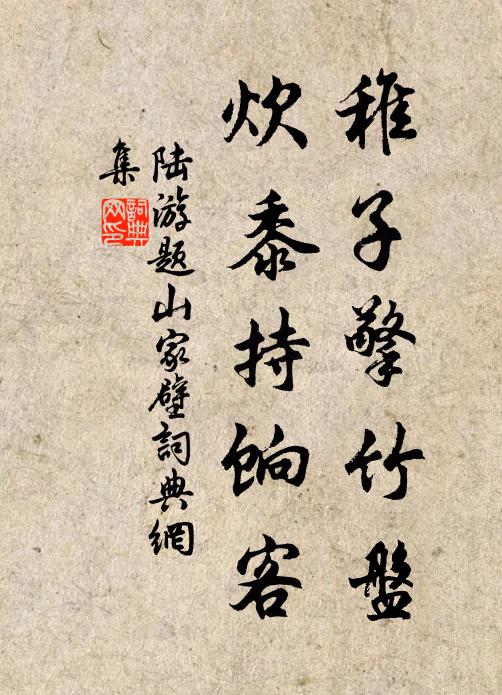 稚子擎竹盤
炊黍持餉客
陆游题山家壁詞典網
集
詞典網印